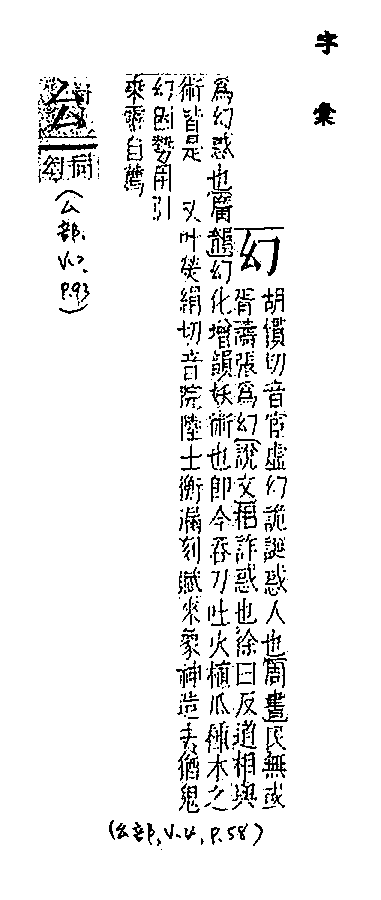 字彙
幻
胡慣切音宦虛幻詭誕惑人也周書民無或
胥譸張爲幻說文相詐惑也徐曰反道相與
爲幻惑也廣韻幻化增韻妖術也卽今吞刀吐火植瓜種木之
術皆是 又叶熒絹切音院陸士衡漏刻賦來象神造去猶鬼
幻因勢引
自薦
(幺部, V.4, P.58)
同幻
(厶部, V.2, P.93)